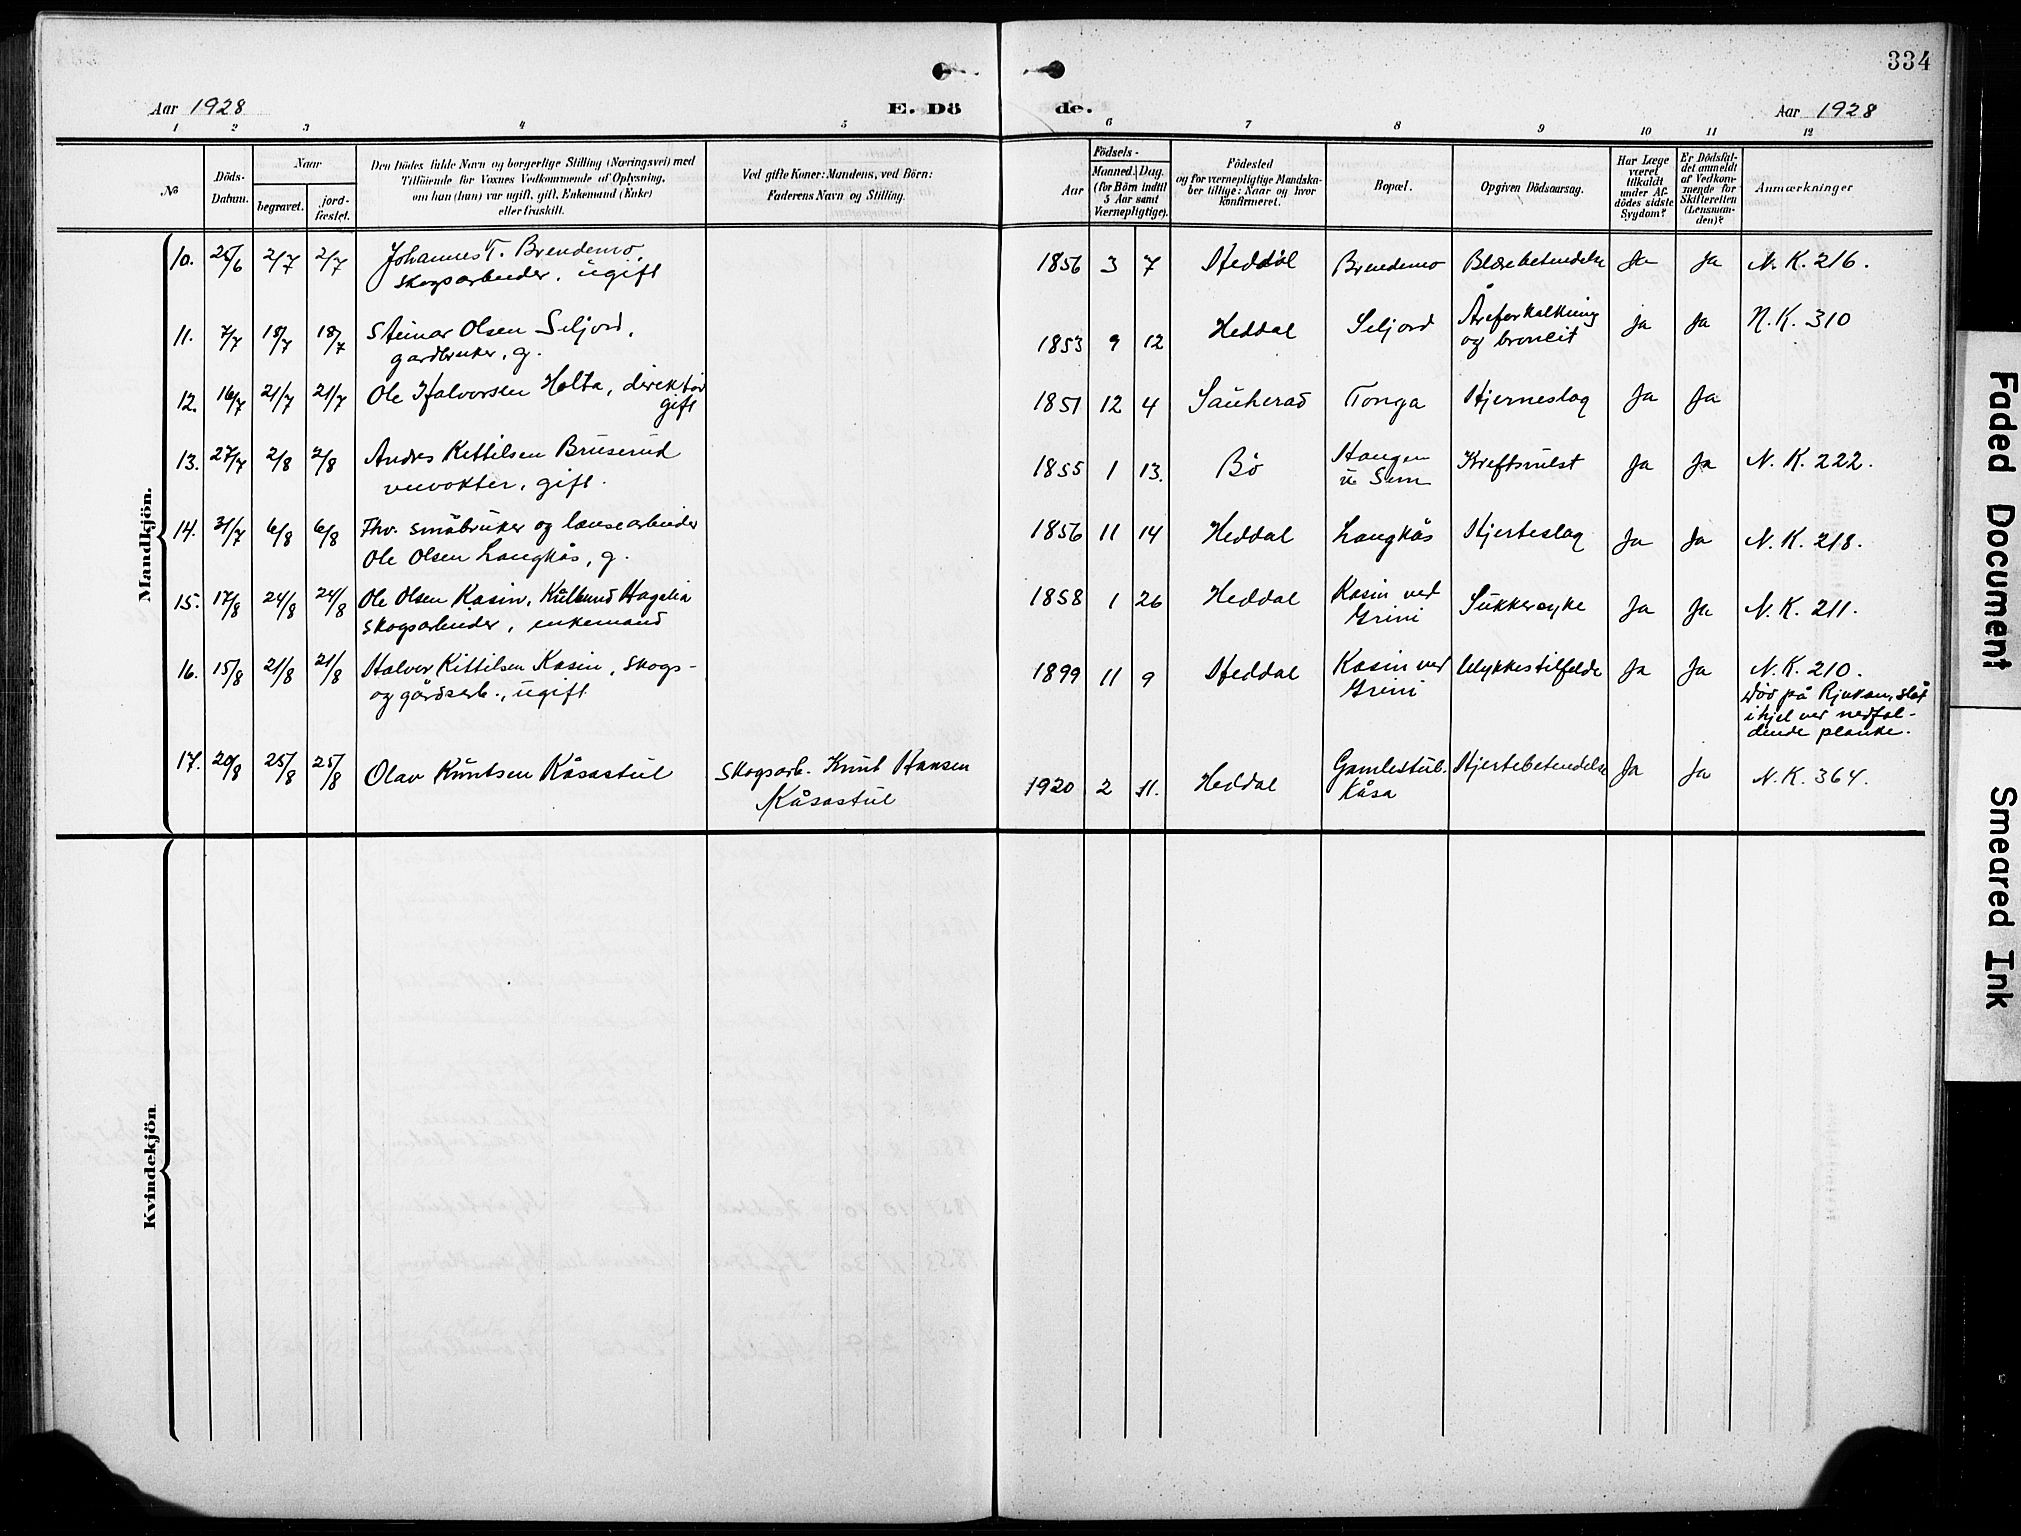 334
Aar 1928 E. Dö de. Aar 1928
1 2 3 4 5 6 7 8 9 10 11 12
No
Döds-
Datum.
Naar
begravet.
jord-
fæstet.
Den Dödes fulde Navn og borgerlige Stilling (Næringsvei) med
Tilföiende for Voxnes Vedkommende af Oplysning,
om hun (han) var ugift, gift, Enkemand (Enke)
eller fraskilt.
Ved gifte Koner: Mandens, ved Börn:
Faderens Navn og Stilling.
Aar
Födsels-
Maaned. Dag.
(for Börn indtil
5 Aar samt
Værnepligtige).
Födested
og for værnepligtige Mandska-
ber tillige: Naar og hvor
konfirmeret.
Bopæl.
Opgiven Dödsaarsag.
Har Læge
været
tilkaldt
under Af-
dödes sidste
Sygdom?
Er Dödsfal-
det anmeldt
af Vedkom-
mende for
Skifteretten
(Lensman-
den)?
Anmærkninger
Mandkjön.
10. 25/6 2/7 2/7 Johannes T. Brendemo, 1856 3 7 Heddal Brendemo Blærebetendelse Ja Ja N. K. 216.
skogsarbeider, ugift
11. 7/7 18/7 18/7 Steinar Olsen Seljord, 1853 9 12 Heddal Seljord Åreforkalkning Ja Ja N.K. 310
gardbruker, g. og bronkit
12. 16/7 21/7 21/7 Ole Halvorsen Holta, direktør 1851 12 4 Sauherad Tonga Hjerneslag Ja Ja
gift
13. 27/7 2/8 2/8 Andres Kittilsen Bruserud 1855 1 13. Bø Haugen Kreftsvulst Ja Ja N. K. 222.
veivokter, gift. u. Sem
14. 31/7 6/8 6/8 Fhv. småbruker og lensearbeider 1856 11 14 Heddal Langkås Hjerteslag Ja Ja N. K. 218.
Ole Olsen Langkås, g.
15. 17/8 24/8 24/8 Ole Olsen Kasin, Kullsund Hagelia 1858 1 26 Heddal Kasin ved Sukkersyke Ja Ja N. K. 211.
skogsarbeider, enkemand Grini
16. 15/8 21/8 21/8 Halvor Kittilsen Kasin, skogs- 1899 11 9 Heddal Kasin ved Ulykkestilfelde Ja Ja N. K. 210.
og gårdsarb., ugift Grini Død på Rjukan, slåt
ihjel ved nedfal-
dende planke.
17. 20/8 25/8 25/8 Olav Knutsen Kåsastul Skogsarb. Knut Hansen 1920 2 11. Heddal Gamlestul. Hjertebetendelse Ja Ja N. K. 364.
Kåsastul Kåsa
Kvindekjön
Faded Document
Smeared Ink